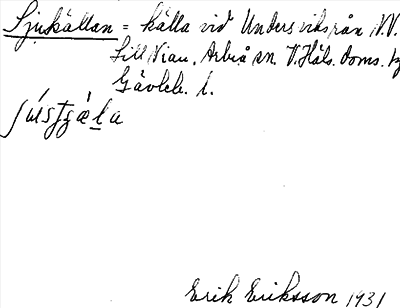 Sjukällan = källa vid Undersviksrån N.V.
till Viau, Arbrå sn. V. Häls. doms.
Gävleb. l.
Erik Eriksson 1931